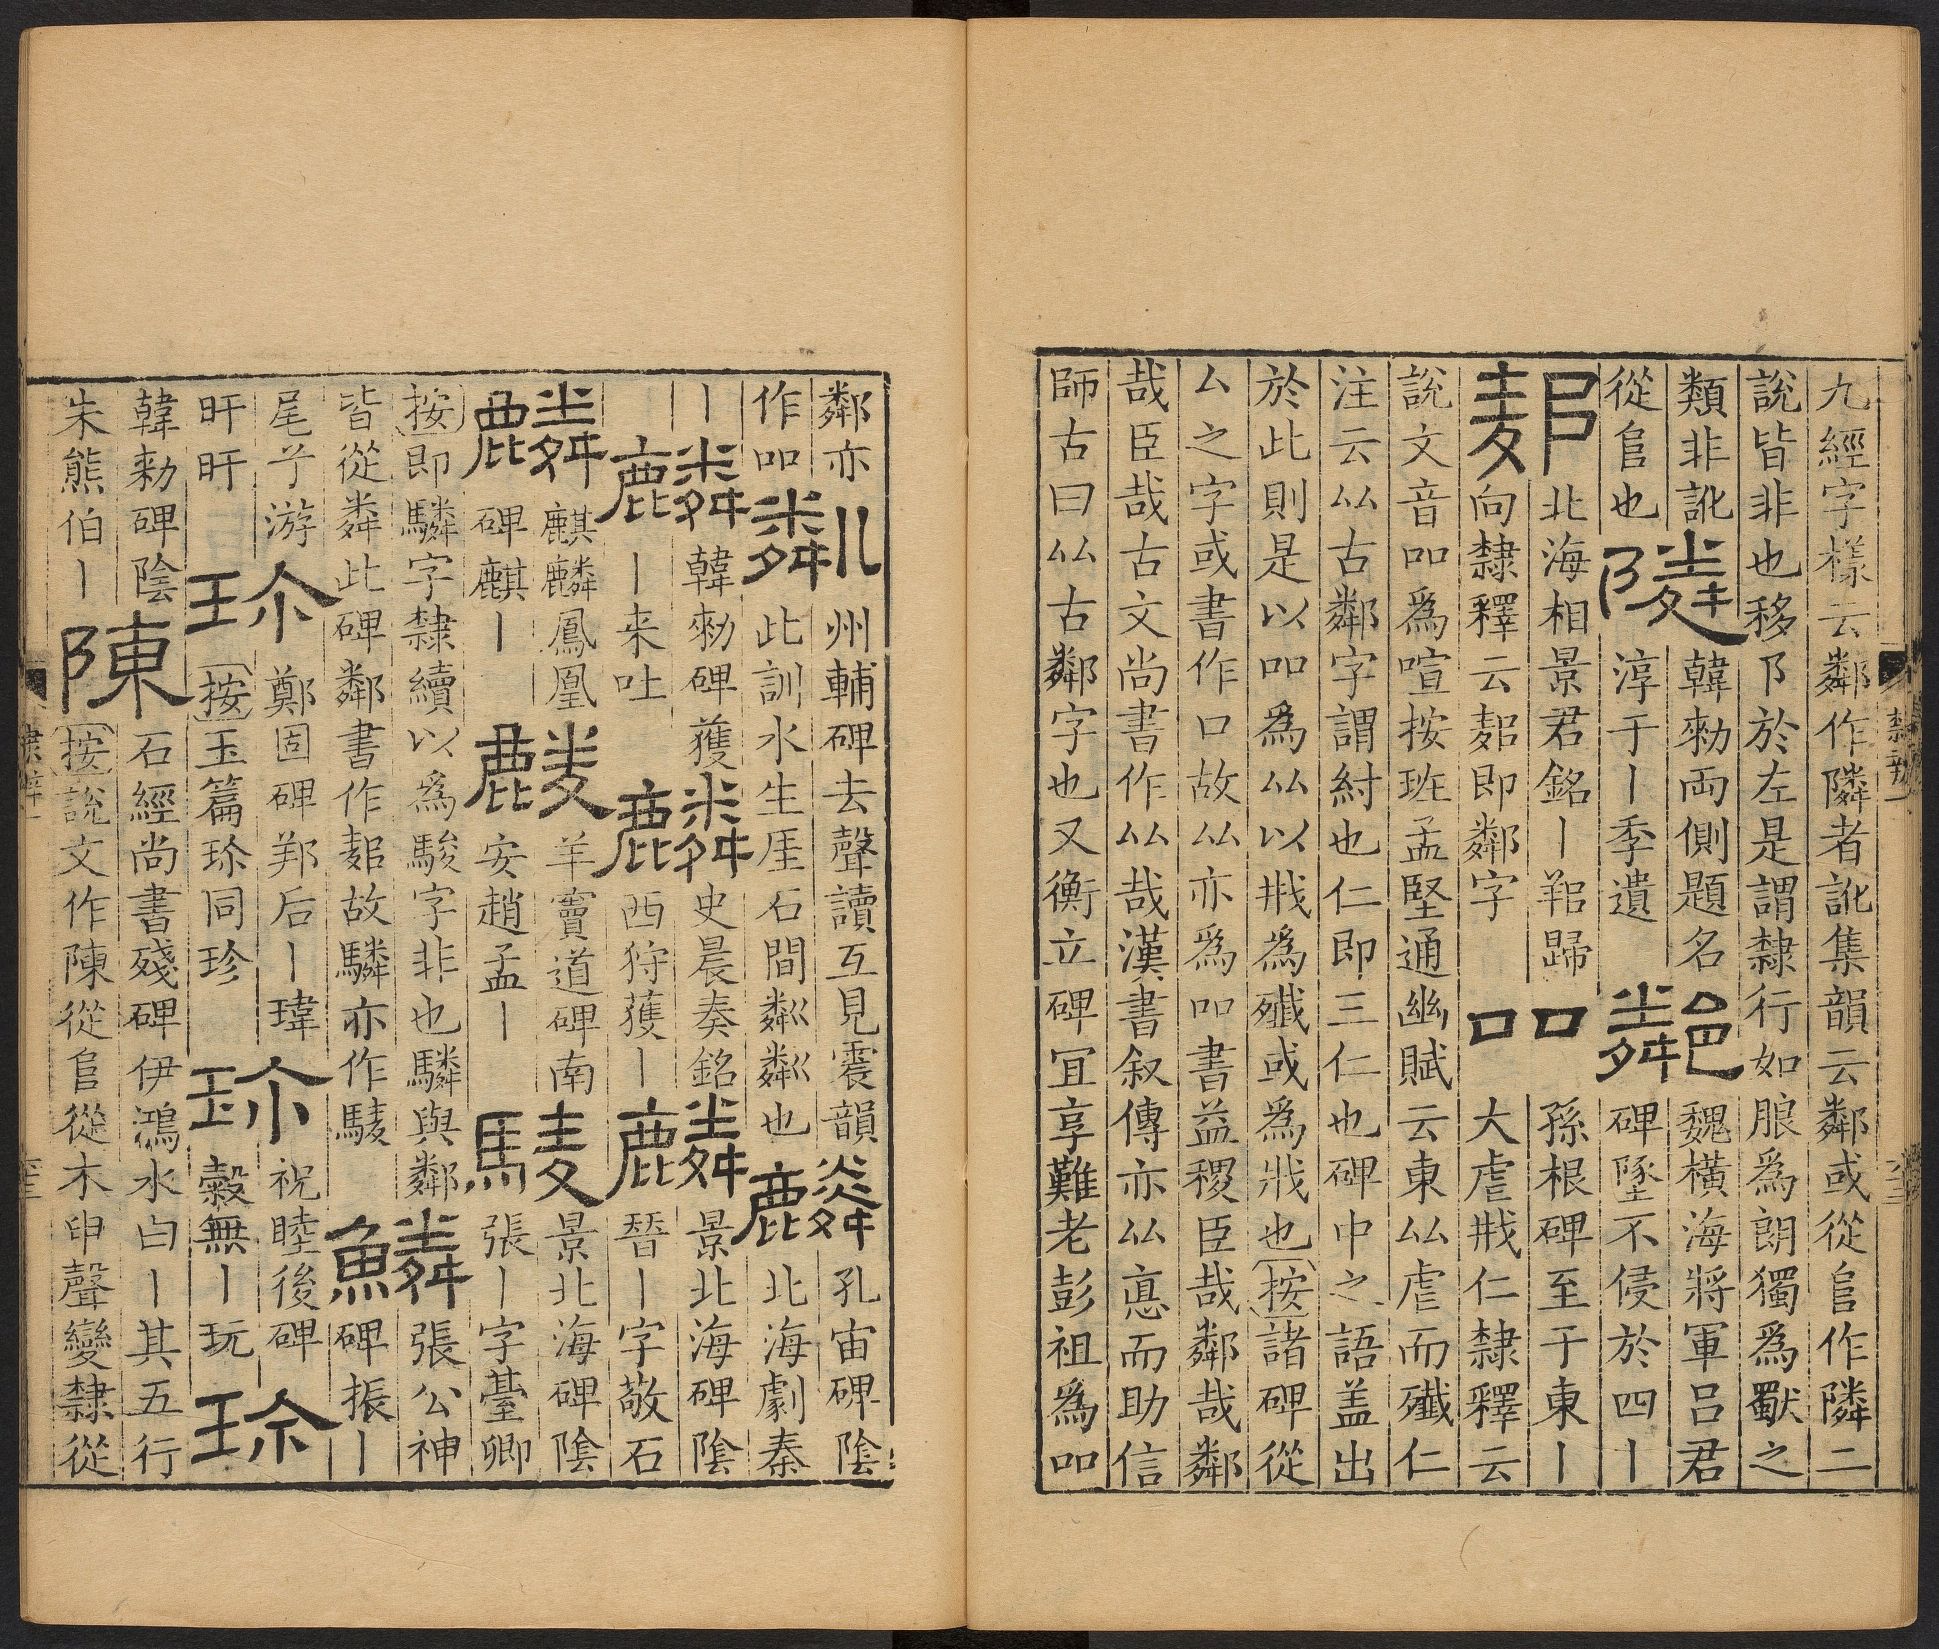 九經字樣云鄰作隣者訛集韻云鄰或從𨸏作隣二
說皆非也移卩於左是謂隸行如朖為朗獨為獸之
類非訛
從𨸏也
隣
韓勑両側題名
淳于丨季遺
魏橫海將軍呂君
碑墜不侵於四丨
北海相景君銘丨䣊歸
向隸釋云䣊即鄰字
吅
孫根碑至于東丨
大虐戕仁隸釋云
說文音吅爲喧按班孟堅通幽賦云東厸虐而殲仁
注云厸古鄰字謂紂也仁即三仁也碑中之語盖出
於此則是以吅爲厸以戕爲殲或爲戕也按諸碑從
厶之字或書作口故厸亦爲吅書益稷臣哉鄰哉鄰
哉臣哉古文尚書作厸哉漢書叙傳亦厸悳而助信
師古曰厸古鄰字也又衡立碑宜享難老彭祖爲吅
鄰亦
作吅
粼
州輔碑去聲讀互見震韻
此訓水生厓石間粼粼也
麟
孔宙碑陰
北海劇秦
丨
麟
韓勑碑獲
丨来吐
麟
史晨奏銘
西狩獲丨
麟
景北海碑陰
晉丨字敬石
麟
麒麟鳳凰
碑麒丨
麟
羊竇道碑南
安趙孟丨
驎
景北海碑陰
張丨字臺卿
按即驎字隸續以爲駿字非也驎與鄰
皆從粦此碑鄰書作䣊故驎亦作䮚
鱗
張公神
碑振丨
尾丷游
旰旰
珎
鄭固碑邦后丨瑋
按玉篇珎同珍
珎
祝睦後碑
糓無丨玩
珎
韓勑碑陰
朱熊伯丨
陳
石經尚書殘碑伊鴻水白丨其五行
按說文作陳從𨸏從木申聲變隸從